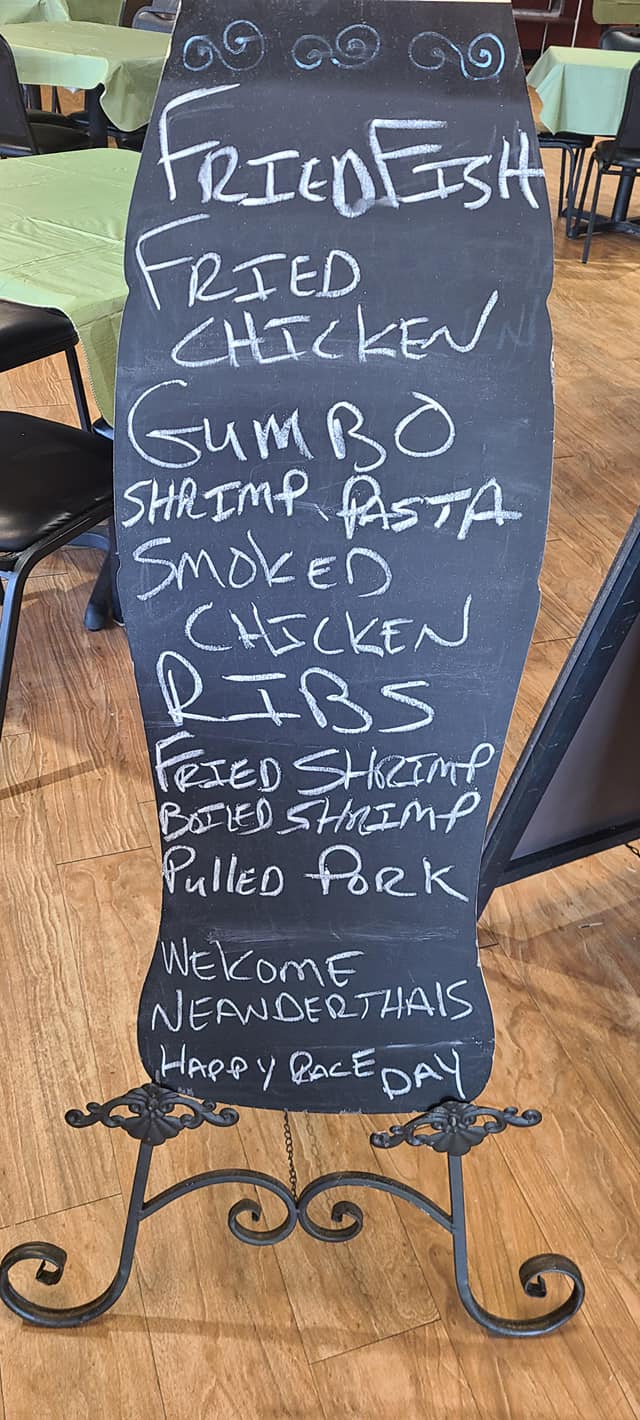 FRIED FISH
FRIED
CHICKEN
GUMBO
SHRIMP PASTA
SMOKED
CHICKEN
RIBS
FRIED SHRIMP
BOILED SHRIMP
PULLED PORK
WELCOME
NEANDERTHALS
HAPPY RACE DAY